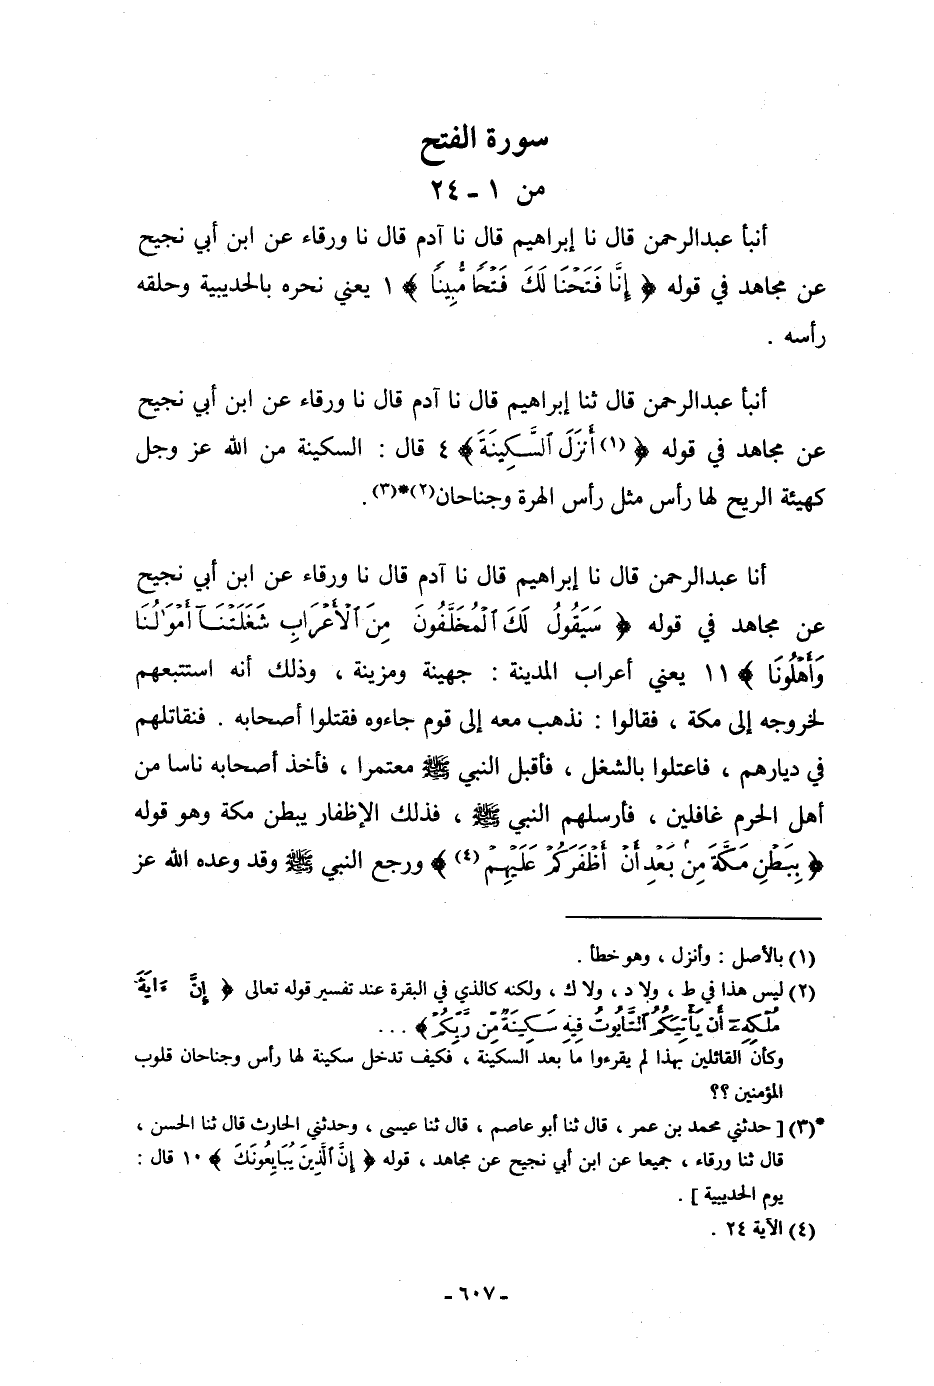 سورة الفتح
من ١ ـ ٢٤
أنبأ عبدالرحمن قال نا إبراهيم قال نا آدم قال نا ورقاء عن ابن أبي نجيح
عن مجاهد في قوله ﴿ إِنَّا فَتَحْنَا لَكَ فَتْحًا مُّبِينًا ﴾ ١ يعني نحره بالحديبية وحلقه
رأسه .
أنبأ عبدالرحمن قال ثنا إبراهيم قال نا آدم قال نا ورقاء عن ابن أبي نجيح
عن مجاهد في قوله ﴿ (١) أَنزَلَ ٱلسَّكِينَةَ ﴾ ٤ قال : السكينة من الله عز وجل
كهيئة الريح لها رأس مثل رأس الهرة وجناحان(٢)*(٣).
أنا عبدالرحمن قال نا إبراهيم قال نا آدم قال نا ورقاء عن ابن أبي نجيح
عن مجاهد في قوله ﴿ سَيَقُولُ لَكَ ٱلْمُخَلَّفُونَ مِنَ ٱلْأَعْرَابِ شَغَلَتْنَآ أَمْوَٰلُنَا
وَأَهْلُونَا ﴾ ١١ يعني أعراب المدينة : جهينة ومزينة ، وذلك أنه استتبعهم
لخروجه إلى مكة ، فقالوا : نذهب معه إلى قوم جاءوه فقتلوا أصحابه . فنقاتلهم
في ديارهم ، فاعتلوا بالشغل ، فأقبل النبي ﷺ معتمرا ، فأخذ أصحابه ناسا من
أهل الحرم غافلين ، فأرسلهم النبي ﷺ ، فذلك الإظفار يبطن مكة وهو قوله
﴿ بِبَطْنِ مَكَّةَ مِنۢ بَعْدِ أَنْ أَظْفَرَكُمْ عَلَيْهِمْ (٤) ﴾ ورجع النبي ﷺ وقد وعده الله عز
(١) بالأصل : وأنزل ، وهو خطأ .
(٢) ليس هذا في ط ، ولا د ، ولا ك ، ولكنه كالذي في البقرة عند تفسير قوله تعالى ﴿ إِنَّ ءَايَةَ
مُلْكِهِۦٓ أَن يَأْتِيَكُمُ ٱلتَّابُوتُ فِيهِ سَكِينَةٌ مِّن رَّبِّكُمْ ﴾ ...
وكأن القائلين بهذا لم يقرءوا ما بعد السكينة ، فكيف تدخل سكينة لها رأس وجناحان قلوب
المؤمنين ؟؟
*(٣) [ حدثني محمد بن عمر ، قال ثنا أبو عاصم ، قال ثنا عيسى ، وحدثني الحارث قال ثنا الحسن ،
قال ثنا ورقاء ، جميعا عن ابن أبي نجيح عن مجاهد ، قوله ﴿ إِنَّ ٱلَّذِينَ يُبَايِعُونَكَ ﴾ ١٠ قال :
يوم الحديبية ] .
(٤) الآية ٢٤ .
ـ ٦٠٧ ـ